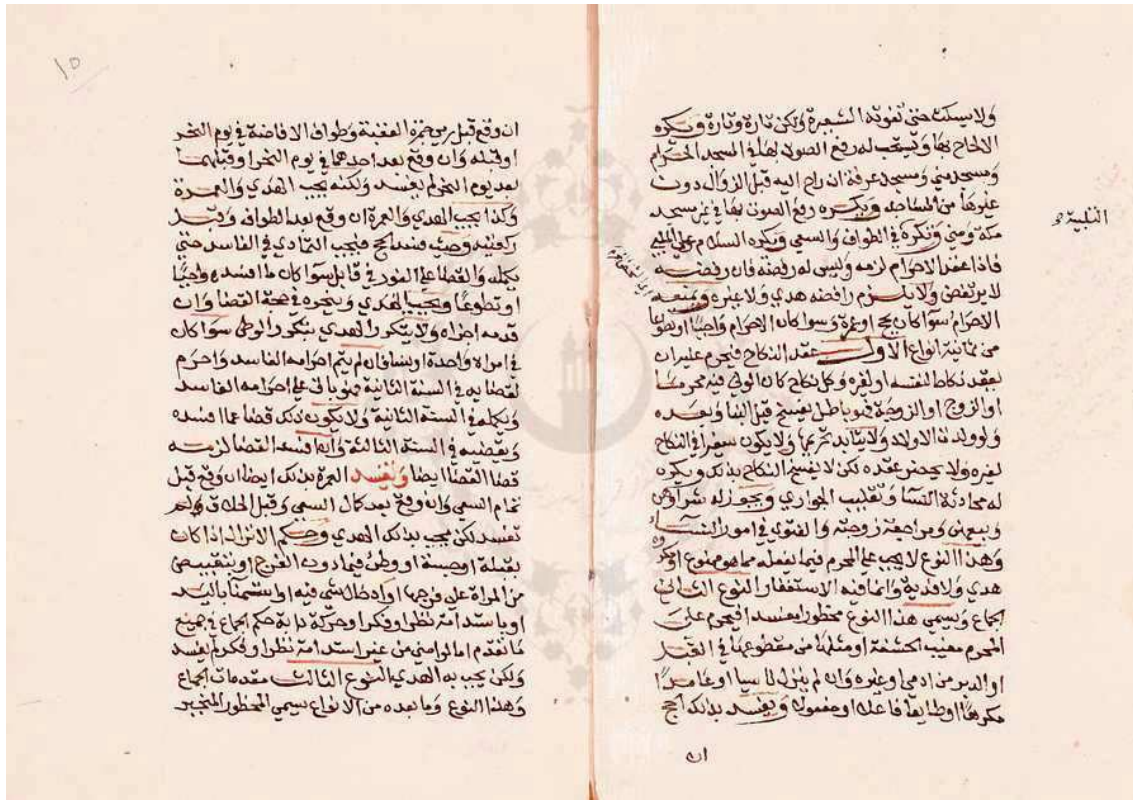 ولا يسكت حتى تفوته الشعيرة ولكن تارة وتارة ويكره
الالحاح بها ويستحب له رفع الصوت بها في المسجد الحرام
ومسجد منى ومسجد عرفة ان راح اليه قبل الزوال دون
غيرها من المساجد ويكره رفع الصوت بها في غير مسجد
مكة ومنى وتكره في الطواف والسعي ويكره السلام على الملبي
فاذا عقد الاحرام لزمه وليس له رفضه فان رفضه
لا يرتفض ولا يلزم رافضه هدي ولا غيره ويمنعه
الاحرام سوا كان بحج او عمرة وسوا كان الاحرام واجبا او تطوعا
من ثمانية انواع الاول عقد النكاح فيحرم عليه ان
يعقد نكاحا لنفسه او لغيره وكل نكاح كان الولي فيه محرما
او الزوج او الزوجة فهو باطل يفسخ قبل البنا وبعده
ولو ولدت الاولاد ولا يتابد تحريمها ولا يكون سفيرا في النكاح
لغيره ولا يحضر عقده لكن لا يفسخ النكاح بذلك ويكره
له محادثة النسا وتقليب الجواري ويجوز له شراؤهن
وبيعهن ومراجعة زوجته والفتوى في امور النساء
وهذا النوع لا يجب على المحرم فيما يفعله مما هو ممنوع او مكروه
هدي ولا فدية وانما فيه الاستغفار النوع الثاني
الجماع ويسمى هذا النوع محظورا مفسدا فيحرم على
المحرم مغيب الحشفة او مثلها من مقطوعها في القبل
او الدبر من ادمي او غيره وان لم ينزل ناسيا او عامدا
مكرها او طايعا فاعلا او مفعولا ويفسد بذلك الحج
ان
التلبية
ان وقع قبل رمي جمرة العقبة وطواف الافاضة في يوم النحر
او قبله وان وقع بعد احدهما في يوم النحر او قبلهما
بعد يوم النحر لم يفسد ولكنه يجب الهدي والعمرة
وكذا يجب الهدي والعمرة ان وقع بعد الطواف وقبل
ركعتيه وحيث فسد الحج فيجب التمادي في الفاسد حتى
يكمله والقضا على الفور في قابل سوا كان ما افسده واجبا
او تطوعا ويجب الهدي وينحره في حجة القضا وان
قدمه اجزاه ولا يتكرر الهدي بتكرر الوطئ سوا كان
في امراة واحدة او نسا فان لم يتم احرامه الفاسد واحرم
لقضايه في السنة الثانية فهو باق على احرامه الفاسد
ويكمله في السنة الثانية ولا يكون ذلك قضا عما افسده
ويقضيه في السنة الثالثة وان افسد القضا لزمه
قضا القضا ايضا وتفسد العمرة بذلك ايضا ان وقع قبل
تمام السعي وان وقع بعد كمال السعي وقبل الحلاق لم
تفسد لكن يجب بذلك الهدي وحكم الانزال اذا كان
بقبلة او جسة او وطئ فيما دون الفرج او بتقبيض
من المراة على فرجها او ادخال شي فيه او استمنا باليد
او باستدامة نظر او فكر او حركة دابة حكم الجماع في جميع
ما تقدم اما لو امنى من غير استدامة نظر او فكر لم يفسد
ولكن يجب به الهدي النوع الثالث مقدمات الجماع
وهذا النوع وما بعده من الانواع يسمى المحظور المنجبر
١٥